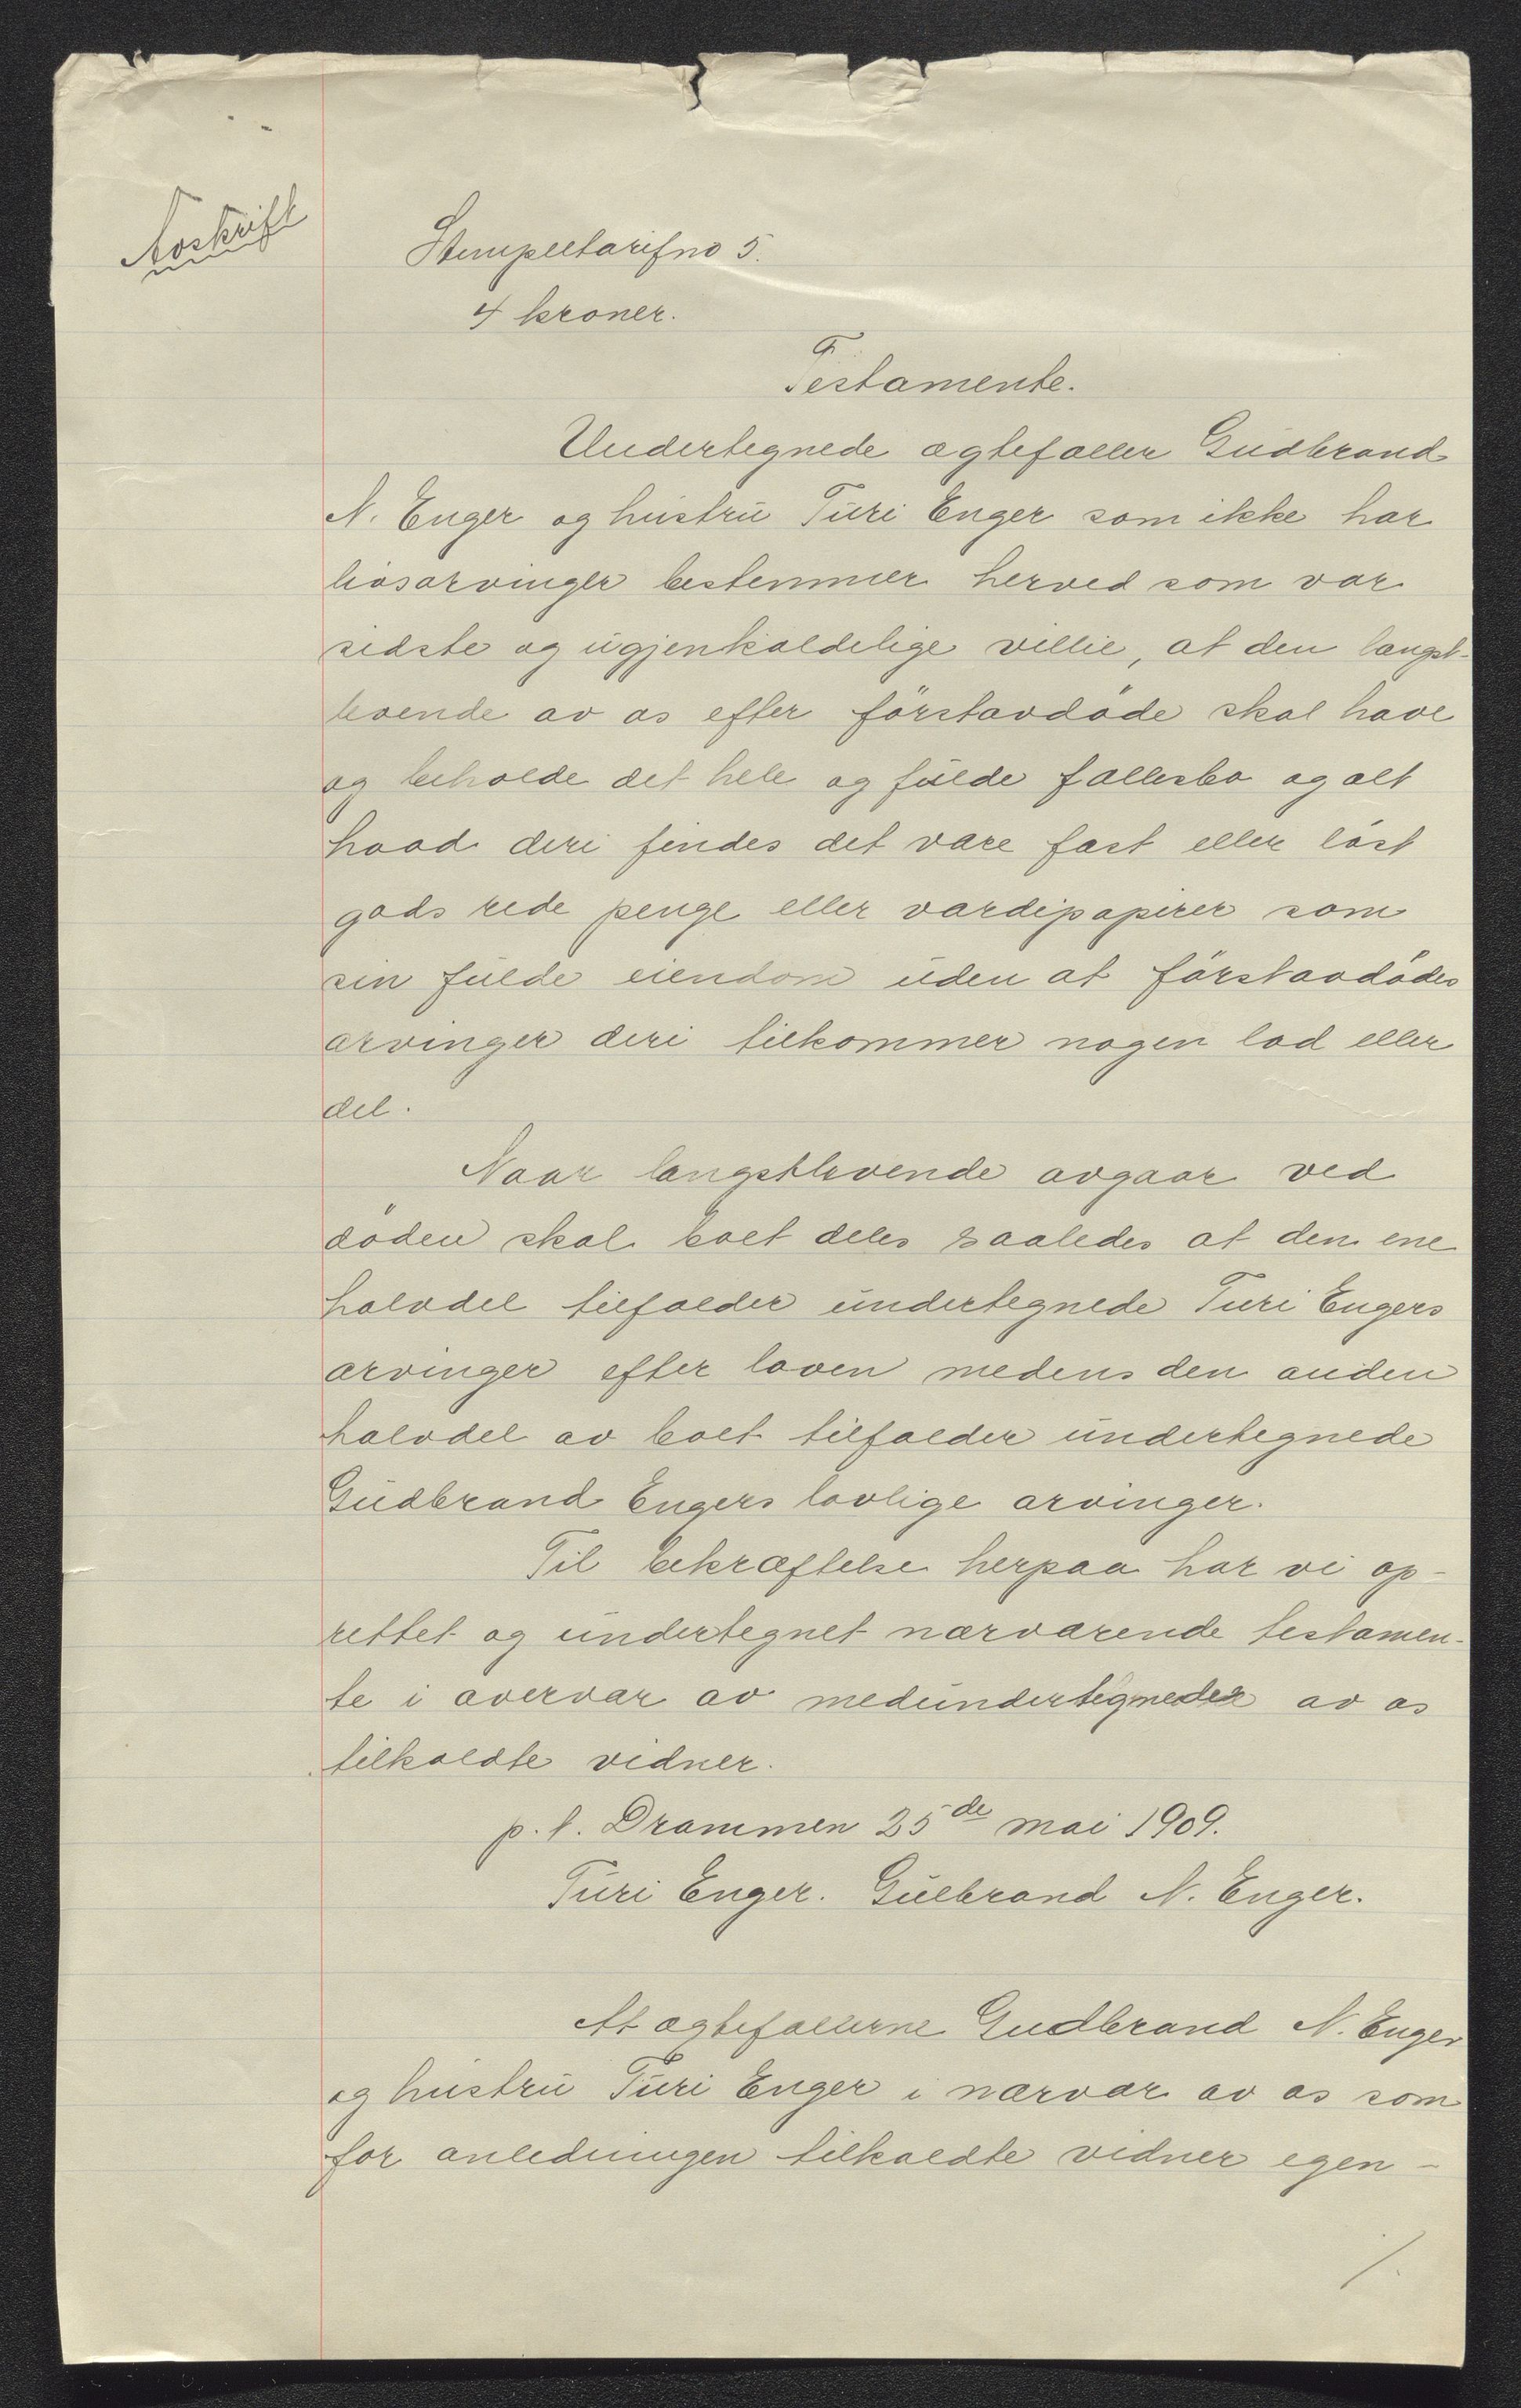 Avskrift
Stempeltarifno 5.
4 kroner.
Testamente.
Undertegnede ægtefæller Gudbrand
N. Enger og hustru Turi Enger som ikke har
livsarvinger bestemmer herved som vor
sidste og ugjenkaldelige villie, at den længst-
levende av os efter förstavdöde skal have
og beholde det hele og fulde fællesbo og alt
hvad deri findes det være fast eller löst
gods rede penge eller værdipapirer som
sin fulde eiendom uden at förstavdödes
arvinger deri tilkommer nogen lod eller
del.
Naar længstlevende avgaar ved
döden skal boet deles saaledes at den ene
halvdel tilfalder undertegnede Turi Engers
arvinger efter loven medens den anden
halvdel av boet tilfalder undertegnede
Gudbrand Engers lovlige arvinger.
Til bekræftelse herpaa har vi op-
rettet og undertegnet nærværende testamen-
te i overvær av medundertegnede av os
tilkaldte vidner.
p.t. Drammen 25de mai 1909.
Turi Enger. Gulbrand N. Enger.
At ægtefællerne Gudbrand N. Enger
og hustru Turi Enger i nærvær av os som
for anledningen tilkaldte vidner egen-
/.